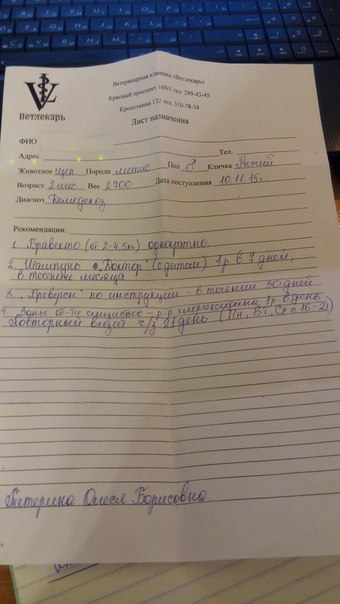 Ветеринарная клиника «Ветлекарь»
Красный проспект 169/1 тел. 299-43-45
Кропоткина 132 тел. 310-78-34
VL
Ветлекарь
Лист назначения
ФИО
Адрес Тел.
Животное щен Порода метис Пол ♂ Кличка Рыжий
Возраст 2 мес Вес 2700 Дата поступления 10.11.15г.
Диагноз Демодекоз
Рекомендации:
1. Бравекто (от 2-4,5кг) однократно.
2. Шампунь "Доктор" (с дегтем) 1 р. в 7 дней,
в течение месяца
3. "Бреверсы" по инструкции - в течении 30 дней
4. Зоны р-р хлоргексидина 1 р. в день
Повторный визит ч/з 21 день (Пн, Вт, Ср с 16-21)
Олеся Борисовна